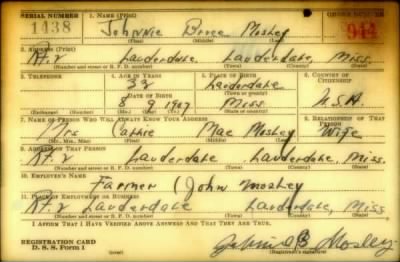 SERIAL NUMBER 1. NAME (Print) ORDER NUMBER
1438 Johnnie Bruce Mosley 944
(First) (Middle) (Last)
2. ADDRESS (Print)
Rt. 2 Lauderdale Lauderdale, Miss.
(Number and street or R. F. D. number) (Town) (County) (State)
3. TELEPHONE 4. AGE IN YEARS 5. PLACE OF BIRTH 6. COUNTRY OF CITIZENSHIP
33 Lauderdale
DATE OF BIRTH (Town or county)
8 1907 Miss U.S.A.
(Exchange) (No.) (Mo.) (Day) (Yr.) (State or country)
7. NAME OF PERSON WHO WILL ALWAYS KNOW YOUR ADDRESS 8. RELATIONSHIP OF THAT PERSON
Mrs Cathie Mae Mosley Wife
(Mr., Mrs., Miss) (First) (Middle) (Last)
9. ADDRESS OF THAT PERSON
Rt. 2 Lauderdale Lauderdale, Miss.
(Number and street or R. F. D. number) (Town) (County) (State)
10. EMPLOYER'S NAME
Farmer (John Mosley
11. PLACE OF EMPLOYMENT OR BUSINESS
Rt. 2 Lauderdale Lauderdale, Miss
(Number and street or R. F. D. number) (Town) (County) (State)
I AFFIRM THAT I HAVE VERIFIED ABOVE ANSWERS AND THAT THEY ARE TRUE.
REGISTRATION CARD
D. S. S. Form 1 Johnnie B Mosley